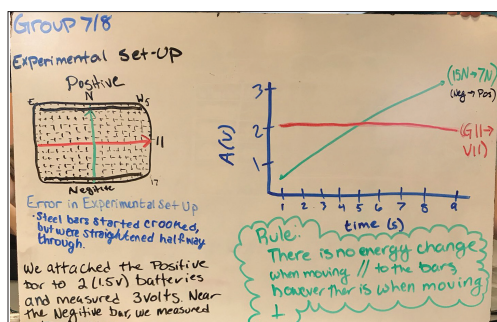 Group 7/8
Experimental Set-Up
Positive
N
E
W5
11
17
Negitive
Error in Experimental Set Up
· Steel bars started crooked,
but were straightened halfway
through.
We attached the Positive
bar to 2 (1.5V) batteries
and measured 3 volts. Near
the Negitive bar, we measured
3
2
1
A(V)
1 2 3 4 5 6 7 8 9
time (s)
(15N→7N)
(Neg → Pos)
(G11→
V11)
Rule:
There is no energy change
when moving // to the bars,
however ther is when moving
⊥